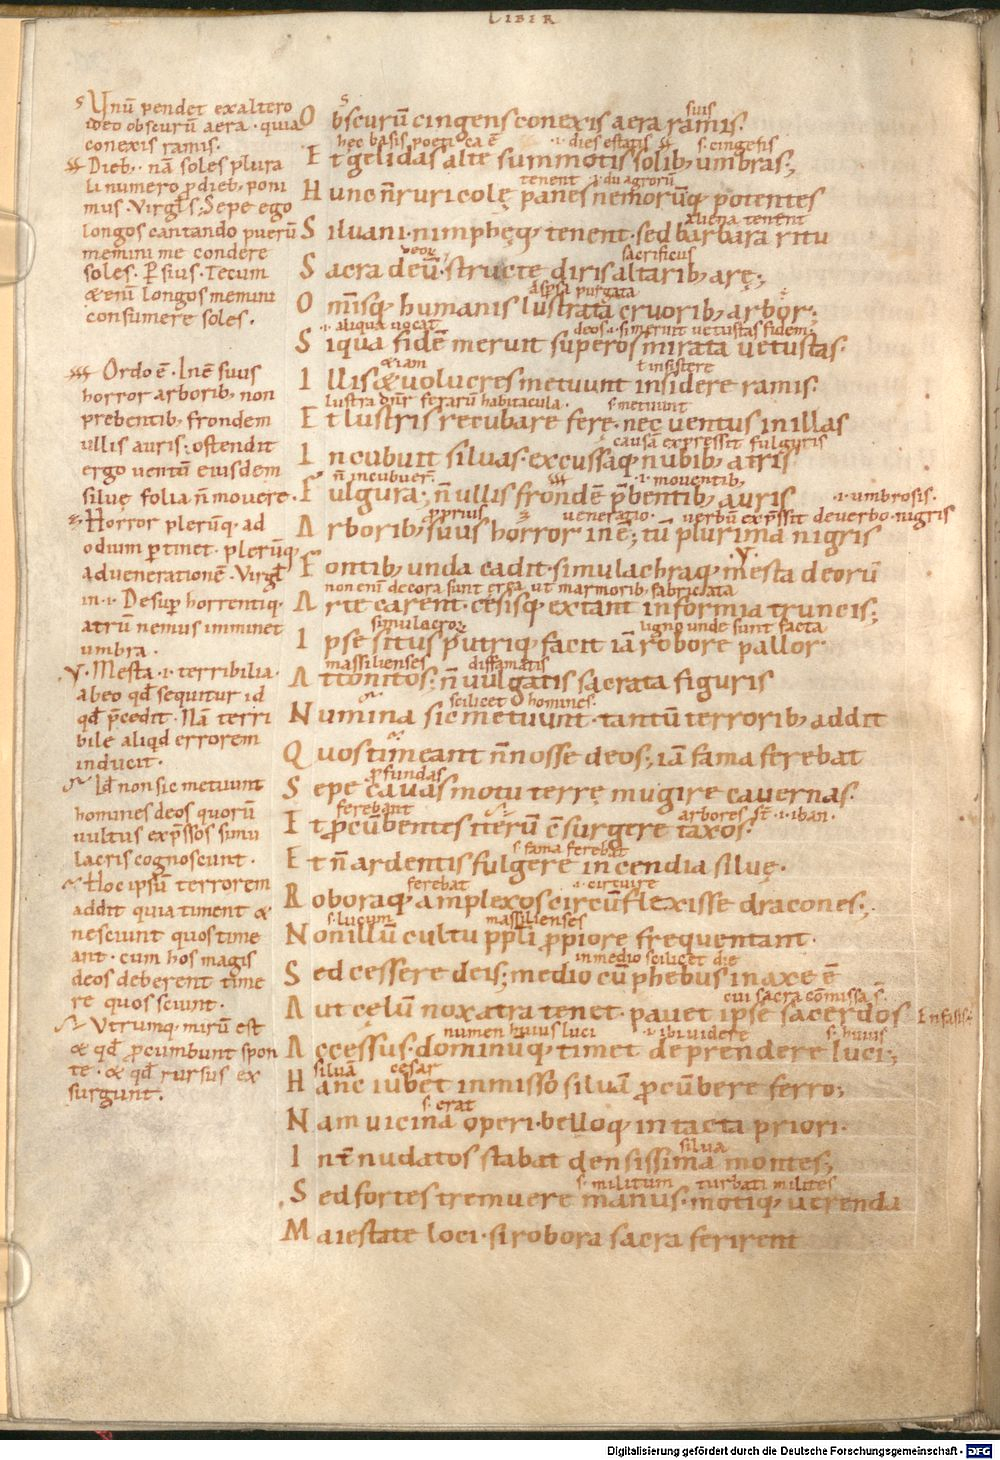 LIBER
Unū pendet exaltero
ideo obscurū aera · quia
conexis ramis.
Dieb; · nā soles plura
li numero p̄ dieb; poni
mus · Virgl̄s; Sepe ego
longos cantando puerū
memini me condere
soles. P̄sius. Tecum
& enī longos memini
consumere soles.
Ordo ē · Inē suus
horror arborib; non
prebentib; frondem
ullis auris; ostendit
ergo uentū eiusdem
siluę folia n̄ mouere.
Horror plerūq; ad
odium p̄tinet · plerūq;
aduenerationē · Virgl̄
in · i · Desup̄ horrentiq;
atrū nemus imminet
umbra.
Mesta · i · terribilia ·
abeo qd̄ sequitur id
qd̄ p̄cedit · Nā terri
bile aliqd errorem
inducit.
Id non sic metuunt
homines deos quorū
uultus exp̄ssos simu
lacris cognoscunt.
Hoc ipsū terrorem
addit quia timent &
nesciunt quos time
ant · cum hos magis
deos deberent time
re quos sciunt.
Utrumq; mirū est
& qd̄ p̄cumbunt spon
te · & qd̄ rursus ex
surgunt.
suis
Obscurū cingens conexis aera ramis.
hec basis poetica ē · i · dies estatis s · cingesis
Et gelidas alte summotis solib; umbras;
tenent
Hunc n̄ ruricolę panes nemorūq; potentes
aliena tenent
Siluani · nimphęq; tenent · sed barbara ritu
sacrificus
Sacra deū · structe diris altarib; arę;
purgata
Om̄isq; humanis lustrata cruorib; arbor;
· i · aliqua uocat deos · i · si meruit uetustas fidem;
Siqua fidē meruit superos mirata uetustas.
& iam ł insistere
Illis & uolucres metuunt insidere ramis.
lustra dn̄r ferarū habitacula · s · metuunt
Et lustris recubare ferę · nec uentus in illas
causā expressit fulguris
Incubuit siluas · excussaq; nubib; atris
n̄ incubuer̄ · i · mouentib;
Fulgura; n̄ ullis frondē p̄bentib; auris · i · umbrosis.
p̄prius ueneratio · uerbū exp̄ssit deuerbo · nigris
Arborib; suus horror inē; tū plurima nigris
Fontib; unda cadit · simulachraq; mesta deorū
non enī decora sunt erga ut marmorib; fabricata
Arte carent · cęsisq; extant informia truncis;
simulacror ligno unde sunt facta
Ipse situs putriq; facit iā robore pallor
massilienses diffamatis
Attonitos; n̄ uulgatis sacrata figuris
scilicet homines ·
Numina sic metuunt · tantū terrorib; addit
Quos timeant n̄ nosse deos; iā fama ferebat
p̄fundas
Sepe cauas motu terrę mugire cauernas.
ferebant arbores st̄ · i · iban ·
It p̄cūbentes iterū c̄surgere taxos.
s · fama ferebat
Et n̄ ardentis fulgere incendia siluę.
ferebat · i · circuire
Roboraq; amplexos circūflexisse dracones;
s · lucum massilienses
Non illū cultu pp̄li p̄piore frequentant.
in medio scilicet die
Sed cessere deis; medio cū phebus in axe ē
cui sacra cōmissa s̄.
Aut cęlū nox atra tenet · pauet ipse sacerdos Enfasis.
numen huius luci · i · ibi uidere s · huius
Accessus · dominūq; timet deprendere luci;
silua cesar
Hanc iubet inmisso siluā p̄cūbere ferro;
s · erat
Nam uicina operi · belloq; intacta priori.
silua
Int̄ nudatos stabat densissima montes;
s · militum turbati milites
Sed fortes tremuere manus · motiq; uerenda
Maiestate loci · si robora sacra ferirent
Digitalisierung gefördert durch die Deutsche Forschungsgemeinschaft - DFG